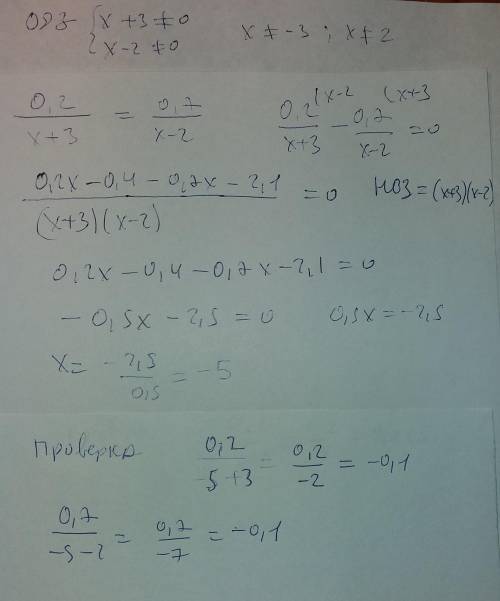 ОДЗ { x + 3 ≠ 0 x ≠ -3 ; x ≠ 2
x - 2 ≠ 0
0,2/(x+3) = 0,7/(x-2) 0,2(x-2/(x+3) - 0,7(x+3/(x-2) = 0
(0,2x - 0,4 - 0,7x - 2,1)/((x+3)(x-2)) = 0 НОЗ = (x+3)(x-2)
0,2x - 0,4 - 0,7x - 2,1 = 0
- 0,5x - 2,5 = 0 0,5x = -2,5
x = - 2,5/0,5 = -5
Проверка 0,2/(-5+3) = 0,2/-2 = -0,1
0,7/(-5-2) = 0,7/-7 = -0,1